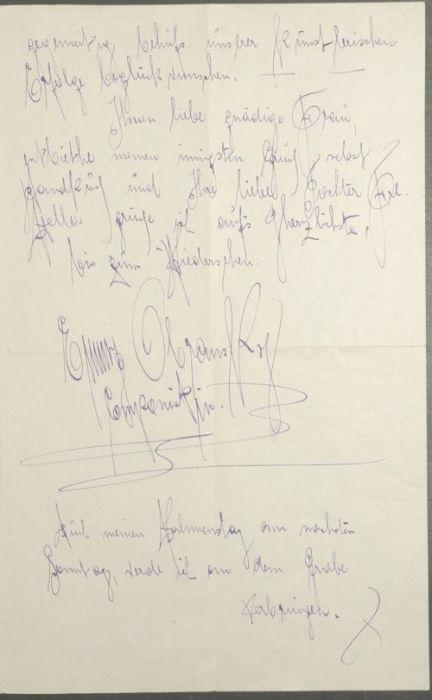 gegenseitig behufs unserer künstlerischen
Erfolge beglückwünschen.
Ihnen liebe gnädige Frau,
entbiethe meinen innigsten Gruß, nebst
Handkuß und Ihre liebe Tochter Frl.
Hella grüße ich aufs Herzlichste,
bis zum Wiedersehen.
Componistin.
meinen am nächsten
Sonntag, werde ich an dem Grabe
verbringen.